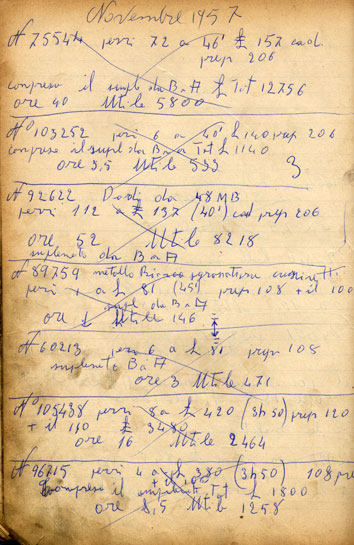 Novembre 1957
N° 75544 pezzi 72 a 46' £ 157 cad
prep 206
compreso il suppl da B a A £ Tot 12756
ore 40 Utile 5800
N° 103252 pezzi 6 a 40' £ 140 prep 206
compreso il suppl da B a A Tot £ 1140
ore 3,5 Utile 533 3
N° 92622 Dadi da 48 MB
pezzi 112 a £ 137 (40') cad prep 206
ore 52 Utile 8218
suplemeto da B a A
N° 89759 metallo Bianco
pezzi 1 a £ 81 (45') prep 108 + il 100
suppl da B a A
ore Utile 146
N° 60213 pezzi 6 a £ 81 prep 108
suplemeto B a A
ore 3 Utile 471
N° 105438 pezzi 8 a £ 420 (3h50) prep 120
+ il 110 £ 3480
ore 16 Utile 2464
N° 96715 pezzi 4 a £ 380 (3h50) 108 pre
compreso il Tot £ 1800
ore 8,5 Utile 1258